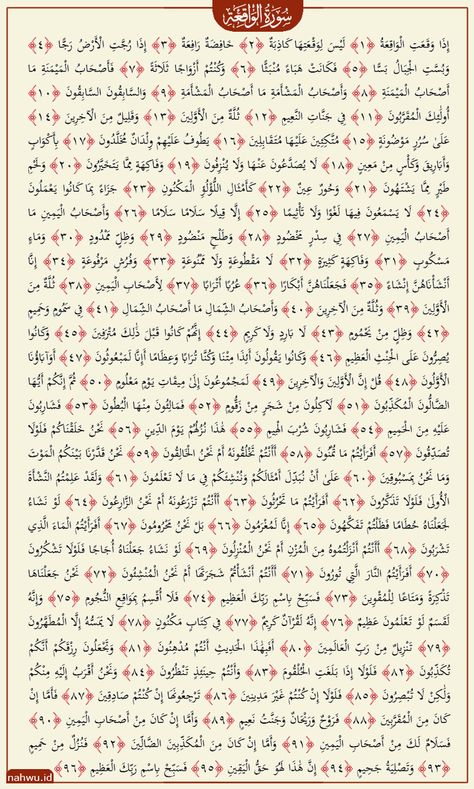 سُورَةُ الْوَاقِعَةِ
إِذَا وَقَعَتِ الْوَاقِعَةُ ﴿١﴾ لَيْسَ لِوَقْعَتِهَا كَاذِبَةٌ ﴿٢﴾ خَافِضَةٌ رَافِعَةٌ ﴿٣﴾ إِذَا رُجَّتِ الْأَرْضُ رَجًّا ﴿٤﴾
وَبُسَّتِ الْجِبَالُ بَسًّا ﴿٥﴾ فَكَانَتْ هَبَاءً مُنْبَثًّا ﴿٦﴾ وَكُنْتُمْ أَزْوَاجًا ثَلَاثَةً ﴿٧﴾ فَأَصْحَابُ الْمَيْمَنَةِ مَا
أَصْحَابُ الْمَيْمَنَةِ ﴿٨﴾ وَأَصْحَابُ الْمَشْأَمَةِ مَا أَصْحَابُ الْمَشْأَمَةِ ﴿٩﴾ وَالسَّابِقُونَ السَّابِقُونَ ﴿١٠﴾
أُولَٰئِكَ الْمُقَرَّبُونَ ﴿١١﴾ فِي جَنَّاتِ النَّعِيمِ ﴿١٢﴾ ثُلَّةٌ مِنَ الْأَوَّلِينَ ﴿١٣﴾ وَقَلِيلٌ مِنَ الْآخِرِينَ ﴿١٤﴾
عَلَىٰ سُرُرٍ مَوْضُونَةٍ ﴿١٥﴾ مُتَّكِئِينَ عَلَيْهَا مُتَقَابِلِينَ ﴿١٦﴾ يَطُوفُ عَلَيْهِمْ وِلْدَانٌ مُخَلَّدُونَ ﴿١٧﴾ بِأَكْوَابٍ
وَأَبَارِيقَ وَكَأْسٍ مِنْ مَعِينٍ ﴿١٨﴾ لَا يُصَدَّعُونَ عَنْهَا وَلَا يُنْزِفُونَ ﴿١٩﴾ وَفَاكِهَةٍ مِمَّا يَتَخَيَّرُونَ ﴿٢٠﴾ وَلَحْمِ
طَيْرٍ مِمَّا يَشْتَهُونَ ﴿٢١﴾ وَحُورٌ عِينٌ ﴿٢٢﴾ كَأَمْثَالِ اللُّؤْلُؤِ الْمَكْنُونِ ﴿٢٣﴾ جَزَاءً بِمَا كَانُوا يَعْمَلُونَ
﴿٢٤﴾ لَا يَسْمَعُونَ فِيهَا لَغْوًا وَلَا تَأْثِيمًا ﴿٢٥﴾ إِلَّا قِيلًا سَلَامًا سَلَامًا ﴿٢٦﴾ وَأَصْحَابُ الْيَمِينِ مَا
أَصْحَابُ الْيَمِينِ ﴿٢٧﴾ فِي سِدْرٍ مَخْضُودٍ ﴿٢٨﴾ وَطَلْحٍ مَنْضُودٍ ﴿٢٩﴾ وَظِلٍّ مَمْدُودٍ ﴿٣٠﴾ وَمَاءٍ
مَسْكُوبٍ ﴿٣١﴾ وَفَاكِهَةٍ كَثِيرَةٍ ﴿٣٢﴾ لَا مَقْطُوعَةٍ وَلَا مَمْنُوعَةٍ ﴿٣٣﴾ وَفُرُشٍ مَرْفُوعَةٍ ﴿٣٤﴾ إِنَّا
أَنْشَأْنَاهُنَّ إِنْشَاءً ﴿٣٥﴾ فَجَعَلْنَاهُنَّ أَبْكَارًا ﴿٣٦﴾ عُرُبًا أَتْرَابًا ﴿٣٧﴾ لِأَصْحَابِ الْيَمِينِ ﴿٣٨﴾ ثُلَّةٌ مِنَ
الْأَوَّلِينَ ﴿٣٩﴾ وَثُلَّةٌ مِنَ الْآخِرِينَ ﴿٤٠﴾ وَأَصْحَابُ الشِّمَالِ مَا أَصْحَابُ الشِّمَالِ ﴿٤١﴾ فِي سَمُومٍ وَحَمِيمٍ
﴿٤٢﴾ وَظِلٍّ مِنْ يَحْمُومٍ ﴿٤٣﴾ لَا بَارِدٍ وَلَا كَرِيمٍ ﴿٤٤﴾ إِنَّهُمْ كَانُوا قَبْلَ ذَٰلِكَ مُتْرَفِينَ ﴿٤٥﴾ وَكَانُوا
يُصِرُّونَ عَلَى الْحِنْثِ الْعَظِيمِ ﴿٤٦﴾ وَكَانُوا يَقُولُونَ أَئِذَا مِتْنَا وَكُنَّا تُرَابًا وَعِظَامًا أَإِنَّا لَمَبْعُوثُونَ ﴿٤٧﴾ أَوَآبَاؤُنَا
الْأَوَّلُونَ ﴿٤٨﴾ قُلْ إِنَّ الْأَوَّلِينَ وَالْآخِرِينَ ﴿٤٩﴾ لَمَجْمُوعُونَ إِلَىٰ مِيقَاتِ يَوْمٍ مَعْلُومٍ ﴿٥٠﴾ ثُمَّ إِنَّكُمْ أَيُّهَا
الضَّالُّونَ الْمُكَذِّبُونَ ﴿٥١﴾ لَآكِلُونَ مِنْ شَجَرٍ مِنْ زَقُّومٍ ﴿٥٢﴾ فَمَالِئُونَ مِنْهَا الْبُطُونَ ﴿٥٣﴾ فَشَارِبُونَ
عَلَيْهِ مِنَ الْحَمِيمِ ﴿٥٤﴾ فَشَارِبُونَ شُرْبَ الْهِيمِ ﴿٥٥﴾ هَٰذَا نُزُلُهُمْ يَوْمَ الدِّينِ ﴿٥٦﴾ نَحْنُ خَلَقْنَاكُمْ فَلَوْلَا
تُصَدِّقُونَ ﴿٥٧﴾ أَفَرَأَيْتُمْ مَا تُمْنُونَ ﴿٥٨﴾ أَأَنْتُمْ تَخْلُقُونَهُ أَمْ نَحْنُ الْخَالِقُونَ ﴿٥٩﴾ نَحْنُ قَدَّرْنَا بَيْنَكُمُ الْمَوْتَ
وَمَا نَحْنُ بِمَسْبُوقِينَ ﴿٦٠﴾ عَلَىٰ أَنْ نُبَدِّلَ أَمْثَالَكُمْ وَنُنْشِئَكُمْ فِي مَا لَا تَعْلَمُونَ ﴿٦١﴾ وَلَقَدْ عَلِمْتُمُ النَّشْأَةَ
الْأُولَىٰ فَلَوْلَا تَذَكَّرُونَ ﴿٦٢﴾ أَفَرَأَيْتُمْ مَا تَحْرُثُونَ ﴿٦٣﴾ أَأَنْتُمْ تَزْرَعُونَهُ أَمْ نَحْنُ الزَّارِعُونَ ﴿٦٤﴾ لَوْ نَشَاءُ
لَجَعَلْنَاهُ حُطَامًا فَظَلْتُمْ تَفَكَّهُونَ ﴿٦٥﴾ إِنَّا لَمُغْرَمُونَ ﴿٦٦﴾ بَلْ نَحْنُ مَحْرُومُونَ ﴿٦٧﴾ أَفَرَأَيْتُمُ الْمَاءَ الَّذِي
تَشْرَبُونَ ﴿٦٨﴾ أَأَنْتُمْ أَنْزَلْتُمُوهُ مِنَ الْمُزْنِ أَمْ نَحْنُ الْمُنْزِلُونَ ﴿٦٩﴾ لَوْ نَشَاءُ جَعَلْنَاهُ أُجَاجًا فَلَوْلَا تَشْكُرُونَ
﴿٧٠﴾ أَفَرَأَيْتُمُ النَّارَ الَّتِي تُورُونَ ﴿٧١﴾ أَأَنْتُمْ أَنْشَأْتُمْ شَجَرَتَهَا أَمْ نَحْنُ الْمُنْشِئُونَ ﴿٧٢﴾ نَحْنُ جَعَلْنَاهَا
تَذْكِرَةً وَمَتَاعًا لِلْمُقْوِينَ ﴿٧٣﴾ فَسَبِّحْ بِاسْمِ رَبِّكَ الْعَظِيمِ ﴿٧٤﴾ فَلَا أُقْسِمُ بِمَوَاقِعِ النُّجُومِ ﴿٧٥﴾ وَإِنَّهُ
لَقَسَمٌ لَوْ تَعْلَمُونَ عَظِيمٌ ﴿٧٦﴾ إِنَّهُ لَقُرْآنٌ كَرِيمٌ ﴿٧٧﴾ فِي كِتَابٍ مَكْنُونٍ ﴿٧٨﴾ لَا يَمَسُّهُ إِلَّا الْمُطَهَّرُونَ
﴿٧٩﴾ تَنْزِيلٌ مِنْ رَبِّ الْعَالَمِينَ ﴿٨٠﴾ أَفَبِهَٰذَا الْحَدِيثِ أَنْتُمْ مُدْهِنُونَ ﴿٨١﴾ وَتَجْعَلُونَ رِزْقَكُمْ أَنَّكُمْ
تُكَذِّبُونَ ﴿٨٢﴾ فَلَوْلَا إِذَا بَلَغَتِ الْحُلْقُومَ ﴿٨٣﴾ وَأَنْتُمْ حِينَئِذٍ تَنْظُرُونَ ﴿٨٤﴾ وَنَحْنُ أَقْرَبُ إِلَيْهِ مِنْكُمْ
وَلَٰكِنْ لَا تُبْصِرُونَ ﴿٨٥﴾ فَلَوْلَا إِنْ كُنْتُمْ غَيْرَ مَدِينِينَ ﴿٨٦﴾ تَرْجِعُونَهَا إِنْ كُنْتُمْ صَادِقِينَ ﴿٨٧﴾ فَأَمَّا إِنْ
كَانَ مِنَ الْمُقَرَّبِينَ ﴿٨٨﴾ فَرَوْحٌ وَرَيْحَانٌ وَجَنَّتُ نَعِيمٍ ﴿٨٩﴾ وَأَمَّا إِنْ كَانَ مِنْ أَصْحَابِ الْيَمِينِ ﴿٩٠﴾
فَسَلَامٌ لَكَ مِنْ أَصْحَابِ الْيَمِينِ ﴿٩١﴾ وَأَمَّا إِنْ كَانَ مِنَ الْمُكَذِّبِينَ الضَّالِّينَ ﴿٩٢﴾ فَنُزُلٌ مِنْ حَمِيمٍ
﴿٩٣﴾ وَتَصْلِيَةُ جَحِيمٍ ﴿٩٤﴾ إِنَّ هَٰذَا لَهُوَ حَقُّ الْيَقِينِ ﴿٩٥﴾ فَسَبِّحْ بِاسْمِ رَبِّكَ الْعَظِيمِ ﴿٩٦﴾
nahwu.id